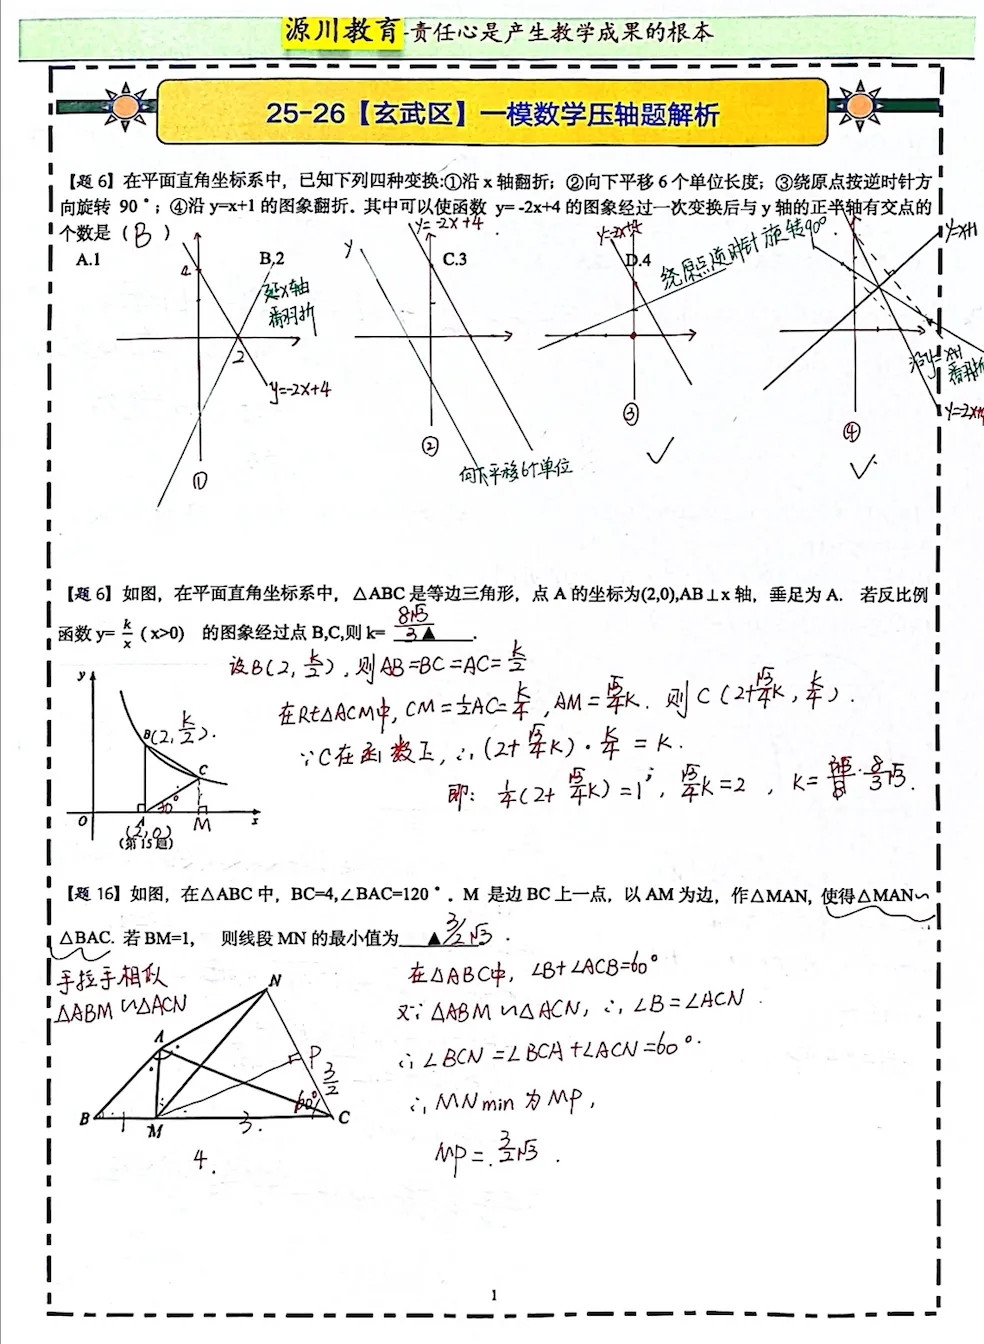 源川教育-责任心是产生教学成果的根本
25-26【玄武区】一模数学压轴题解析
【题6】在平面直角坐标系中，已知下列四种变换:①沿x轴翻折；②向下平移6个单位长度；③绕原点按逆时针方
向旋转 90°；④沿y=x+1的图象翻折。其中可以使函数 y= -2x+4 的图象经过一次变换后与y轴的正半轴有交点的
个数是（ B ）
A.1 B.2 C.3 D.4
y=-2x+4
y=x+1
绕原点逆时针旋转90°
延x轴
看翻折
4
2
y=-2x+4
y
沿y=x+1
看翻折
y=-2x+4
①
②
③
④
向下平移6个单位
【题6】如图，在平面直角坐标系中，△ABC是等边三角形，点A的坐标为(2,0),AB⊥x轴，垂足为A. 若反比例
函数y= k/x ( x>0) 的图象经过点B,C,则k= 8√3/3 ▲ .
设B(2, k/2), 则AB=BC=AC=k/2
在Rt△ACM中, CM=½AC=k/4, AM=√3/4k. 则C(2+√3/4k, k/4).
∵C在函数上, ∴(2+√3/4k)·k/4=k.
即: ¼(2+√3/4k)=1, √3/4k=2, k=8/3√3.
y
B(2, k/2).
C
30°
O
A
M
x
(2,0)
(第15题)
【题16】如图，在△ABC中，BC=4,∠BAC=120°. M 是边BC上一点，以AM为边，作△MAN, 使得△MAN∽
△BAC. 若BM=1, 则线段MN的最小值为 ▲ 3/2√3 .
手拉手相似
△ABM∽△ACN
在△ABC中, ∠B+∠ACB=60°
又∵△ABM∽△ACN, ∴∠B=∠ACN
∴∠BCN=∠BCA+∠ACN=60°.
∴MNmin为MP,
MP=3/2√3.
N
A
P
3/2
60°
B
1
M
3.
C
4.
1